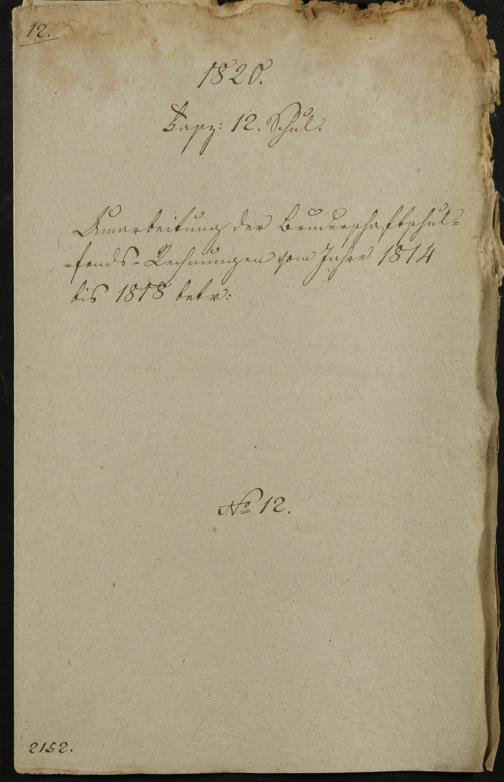 12.
1820.
Fasz: 12. Schul.
Umarbeitung der Bruderschaftschul-
-fonds-Rechnungen vom Jahre 1814
bis 1818 betr:
No 12.
2152.